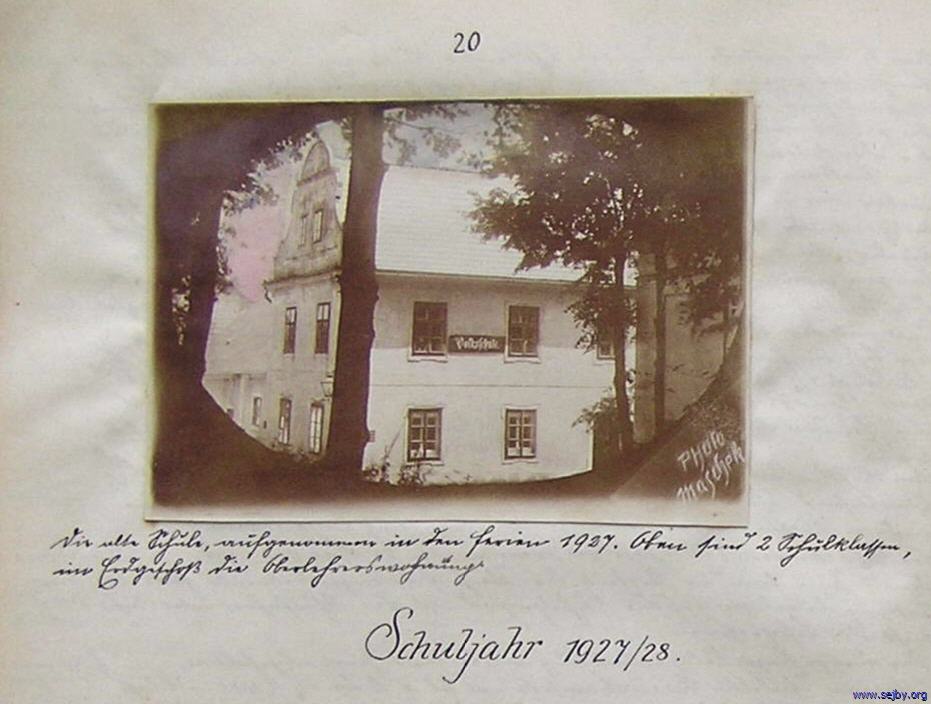 20
Volksschule.
Photo
Maschek
Die alte Schule, aufgenommen in den Ferien 1927. Oben sind 2 Schulklassen,
im Erdgeschoß die Oberlehrerswohnung.
Schuljahr 1927/28.
www.sejby.org